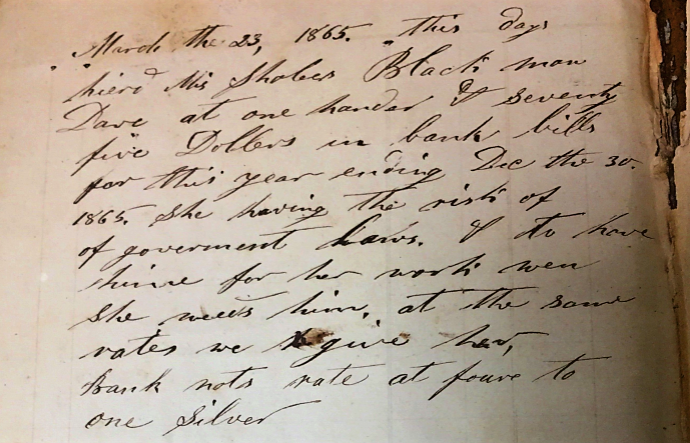 "March the 23, 1865. "this days
hierd Mis Shobers Black man
Dave at one hander & seventy
five Dollers in bank bills
for this year ending Dec the 30.
1865. She having the risk of
of goverment Laws. & to have
hime for her work wen
She needs him, at the same
rates we give her,
Bank nots rate at foure to
one Silver